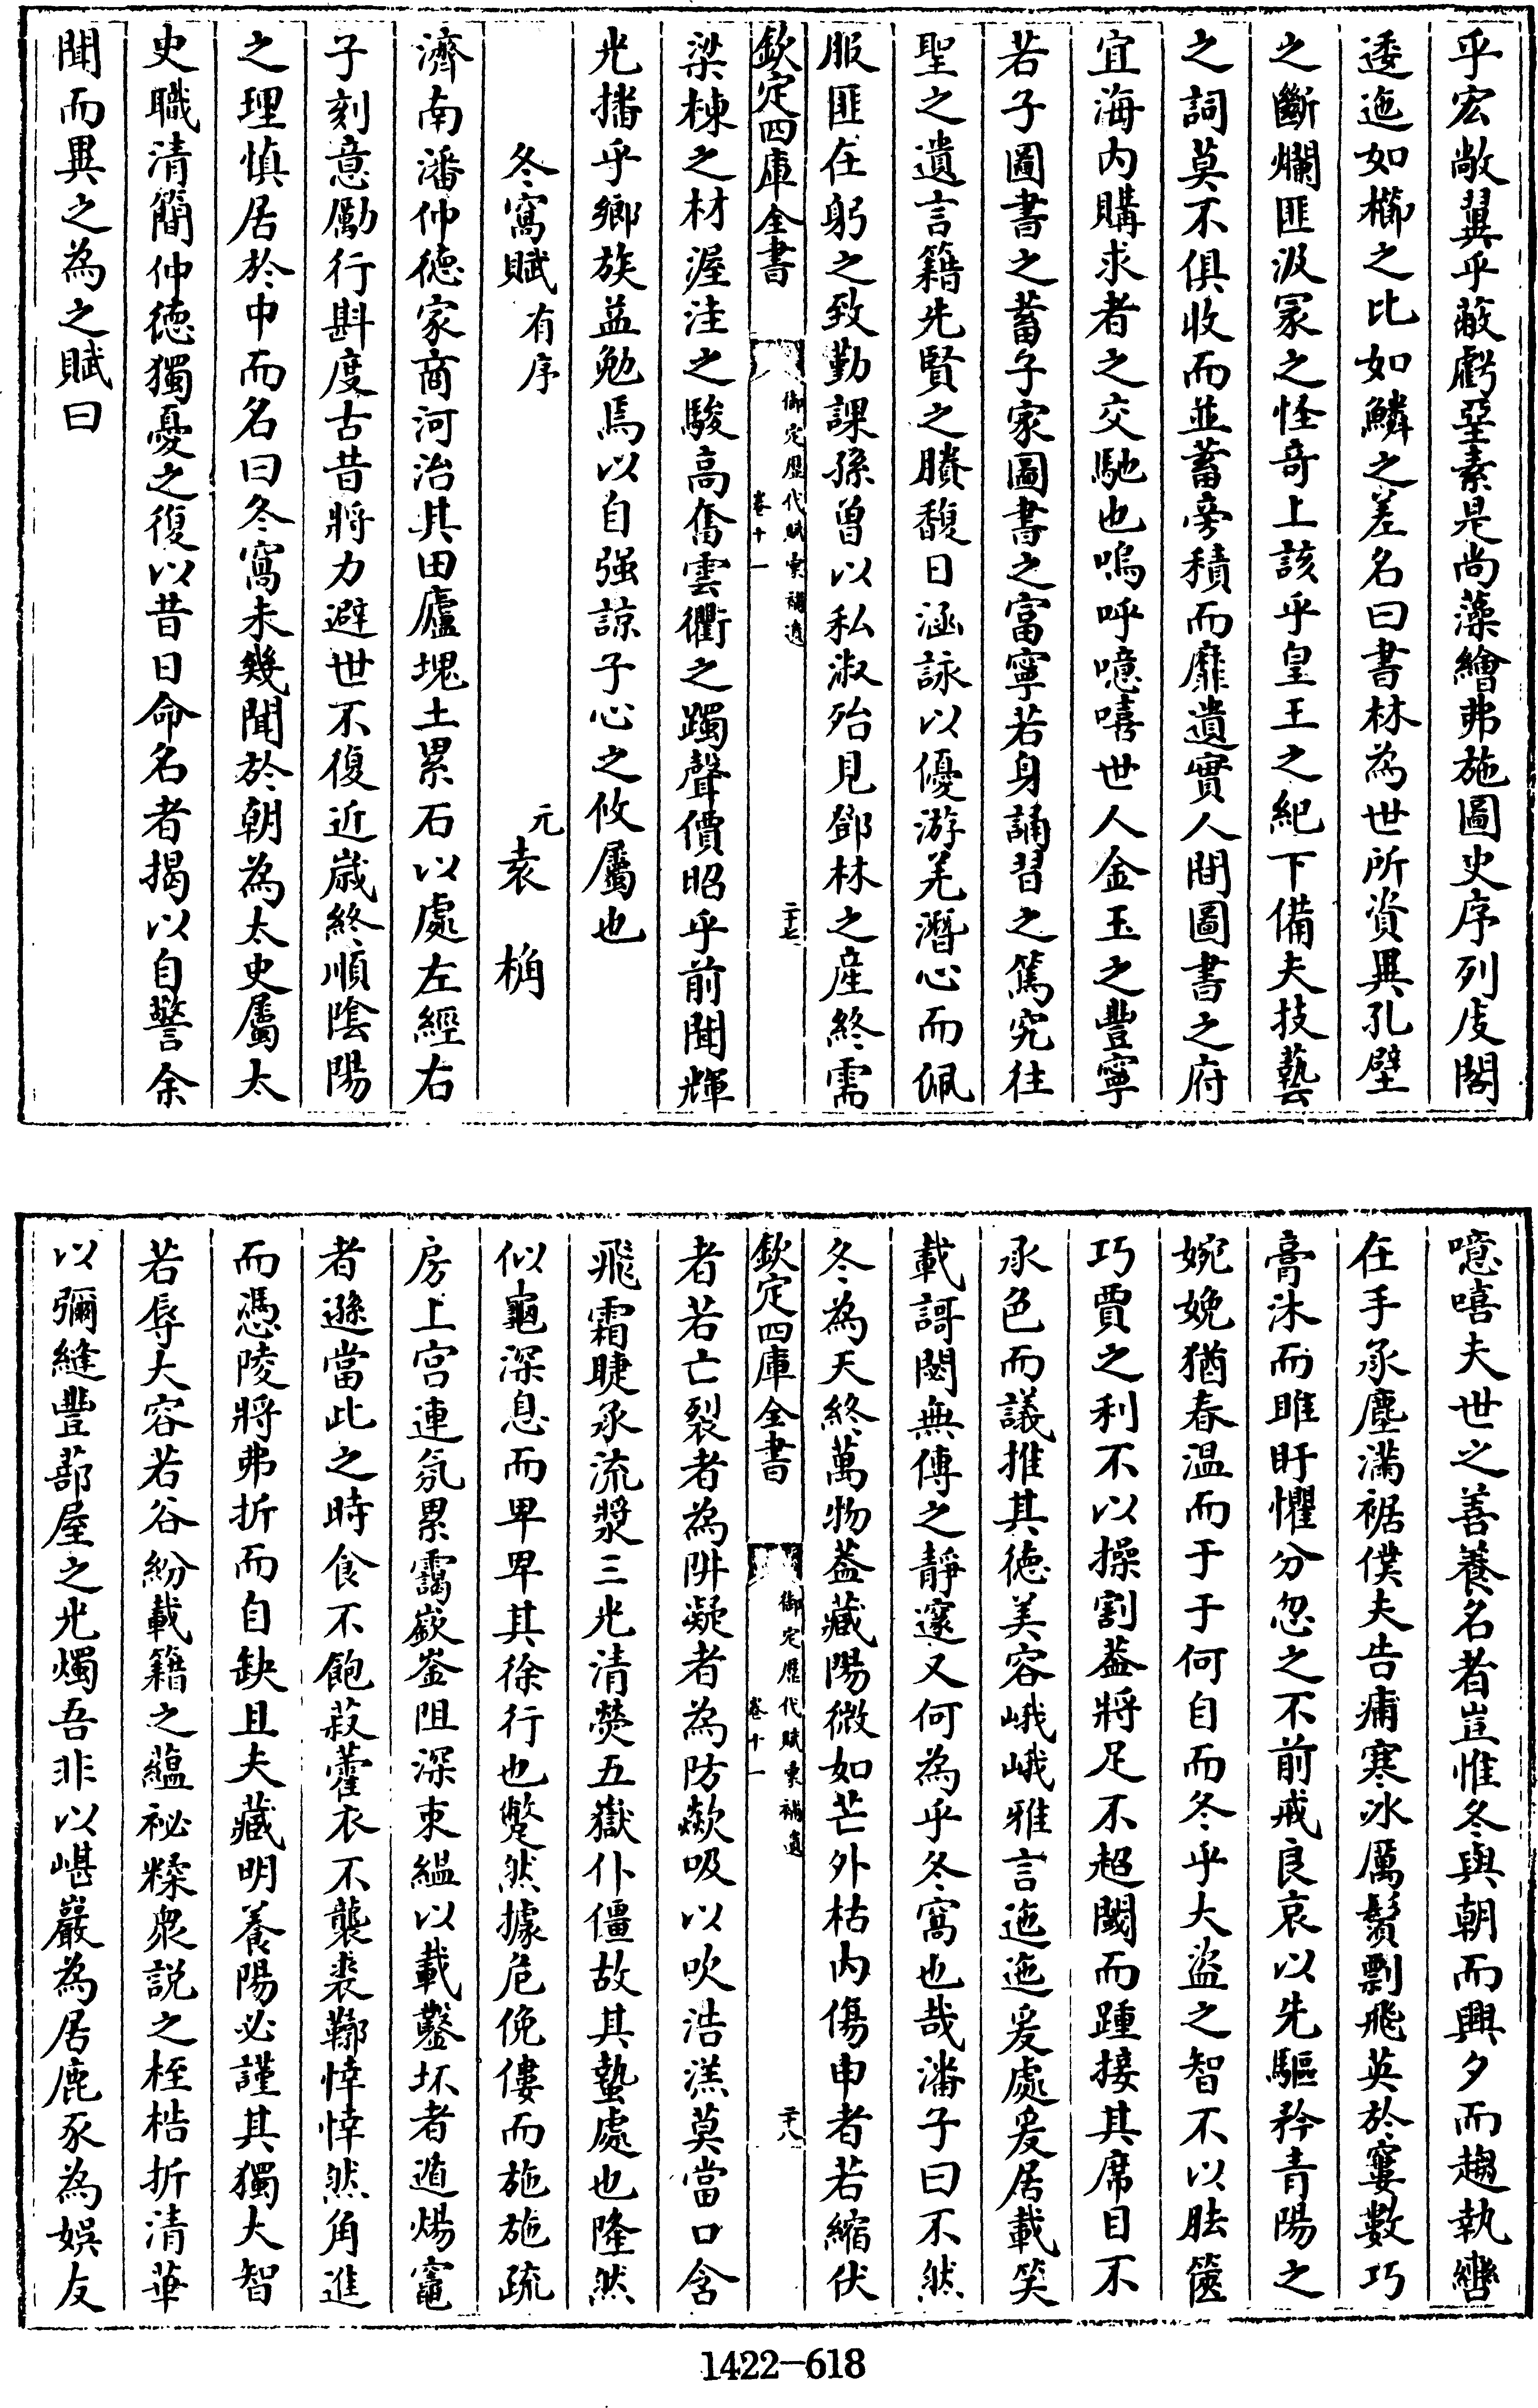 乎宏敞翼乎蔽虧堊素是尚藻繪弗施圖史序列庋閣
逶迤如櫛之比如鱗之差名曰書林為世所資異孔壁
之斷爛匪汲冢之怪奇上該乎皇王之紀下備夫技藝
之詞莫不俱收而並蓄旁積而靡遺實人間圖書之府
宜海内購求者之交馳也嗚呼噫嘻世人金玉之豐寧
若子圖書之蓄子家圖書之富寧若身誦習之篤究往
聖之遺言籍先賢之賸馥日涵詠以優游羌潛心而佩
服匪在躬之致勤課孫曾以私淑殆見鄧林之産終需
欽定四庫全書
御定歷代賦彙補遺
卷十一
二十七
梁棟之材渥洼之駿高奮雲衢之躅聲價昭乎前聞輝
光播乎鄉族益勉焉以自强諒子心之攸屬也
冬窩賦有序
元袁桷
濟南潘仲徳家商河治其田廬塊土累石以處左經右
子刻意勵行斟度古昔將力避世不復近歲終順陰陽
之理慎居於中而名曰冬窩未幾聞於朝為太史屬太
史職清簡仲徳獨憂之復以昔日命名者揭以自警余
聞而異之為之賦曰
噫嘻夫世之善養名者豈惟冬與朝而興夕而趨執轡
在手承塵滿裾僕夫告痡寒冰厲鬢剽飛英於窶數巧
膏沐而睢盱懼分忽之不前戒良哀以先驅矜青陽之
婉娩猶春温而于于何自而冬乎大盜之智不以胠篋
巧賈之利不以操割葢將足不超閾而踵接其席目不
承色而議推其徳美容峨峨雅言迤迤爰處爰居載笑
載謌闃無傳之靜邃又何為乎冬窩也哉潘子曰不然
冬為天終萬物葢藏陽微如芒外枯内傷申者若縮伏
欽定四庫全書
御定歷代賦彙補遺
卷十一
二十八
者若亡裂者為阱凝者為防歘吸以吹浩溔莫當口含
飛霜睫承流漿三光清熒五嶽仆僵故其蟄處也隆然
似龜深息而卑卑其徐行也蹩然據危俛僂而施施疏
房上宫連氛累靄嶔崟阻深束緼以載鑿坏者遁煬竈
者遜當此之時食不飽菽藿衣不襲裘鞹悻悻然角進
而憑陵將弗折而自缺且夫藏明養陽必謹其獨大智
若辱大容若谷紛載籍之蘊祕糅衆説之桎梏折清華
以彌縫豐蔀屋之光燭吾非以嵁巖為居鹿豕為娛友
1422—618